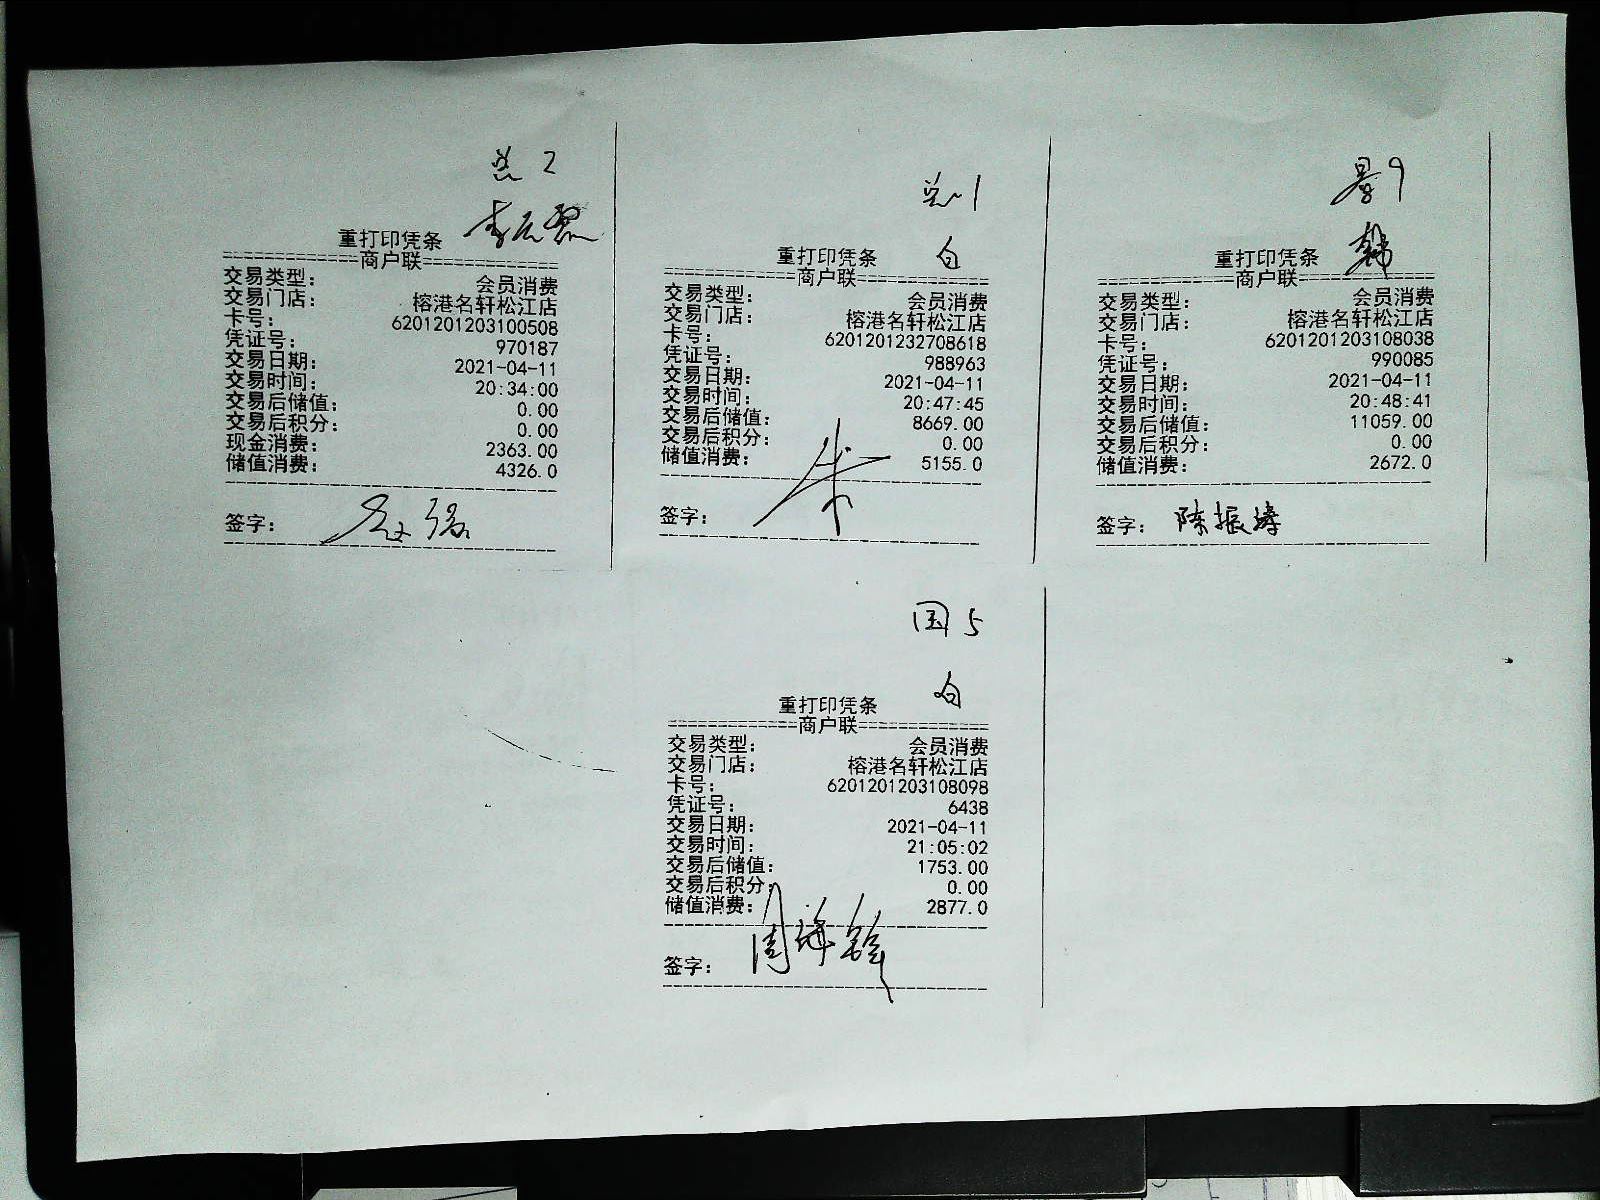 2
重打印凭条
==============商户联==============
交易类型: 会员消费
交易门店: 榕港名轩松江店
卡号: 6201201203100508
凭证号: 970187
交易日期: 2021-04-11
交易时间: 20:34:00
交易后储值: 0.00
交易后积分: 0.00
现金消费: 2363.00
储值消费: 4326.0
签字:
1
白
重打印凭条
==============商户联==============
交易类型: 会员消费
交易门店: 榕港名轩松江店
卡号: 6201201232708618
凭证号: 988963
交易日期: 2021-04-11
交易时间: 20:47:45
交易后储值: 8669.00
交易后积分: 0.00
储值消费: 5155.0
签字: 朱
9
韩
重打印凭条
==============商户联==============
交易类型: 会员消费
交易门店: 榕港名轩松江店
卡号: 6201201203108038
凭证号: 990085
交易日期: 2021-04-11
交易时间: 20:48:41
交易后储值: 11059.00
交易后积分: 0.00
储值消费: 2672.0
签字: 陈振涛
国 5
白
重打印凭条
==============商户联==============
交易类型: 会员消费
交易门店: 榕港名轩松江店
卡号: 6201201203108098
凭证号: 6438
交易日期: 2021-04-11
交易时间: 21:05:02
交易后储值: 1753.00
交易后积分: 0.00
储值消费: 2877.0
签字: 周